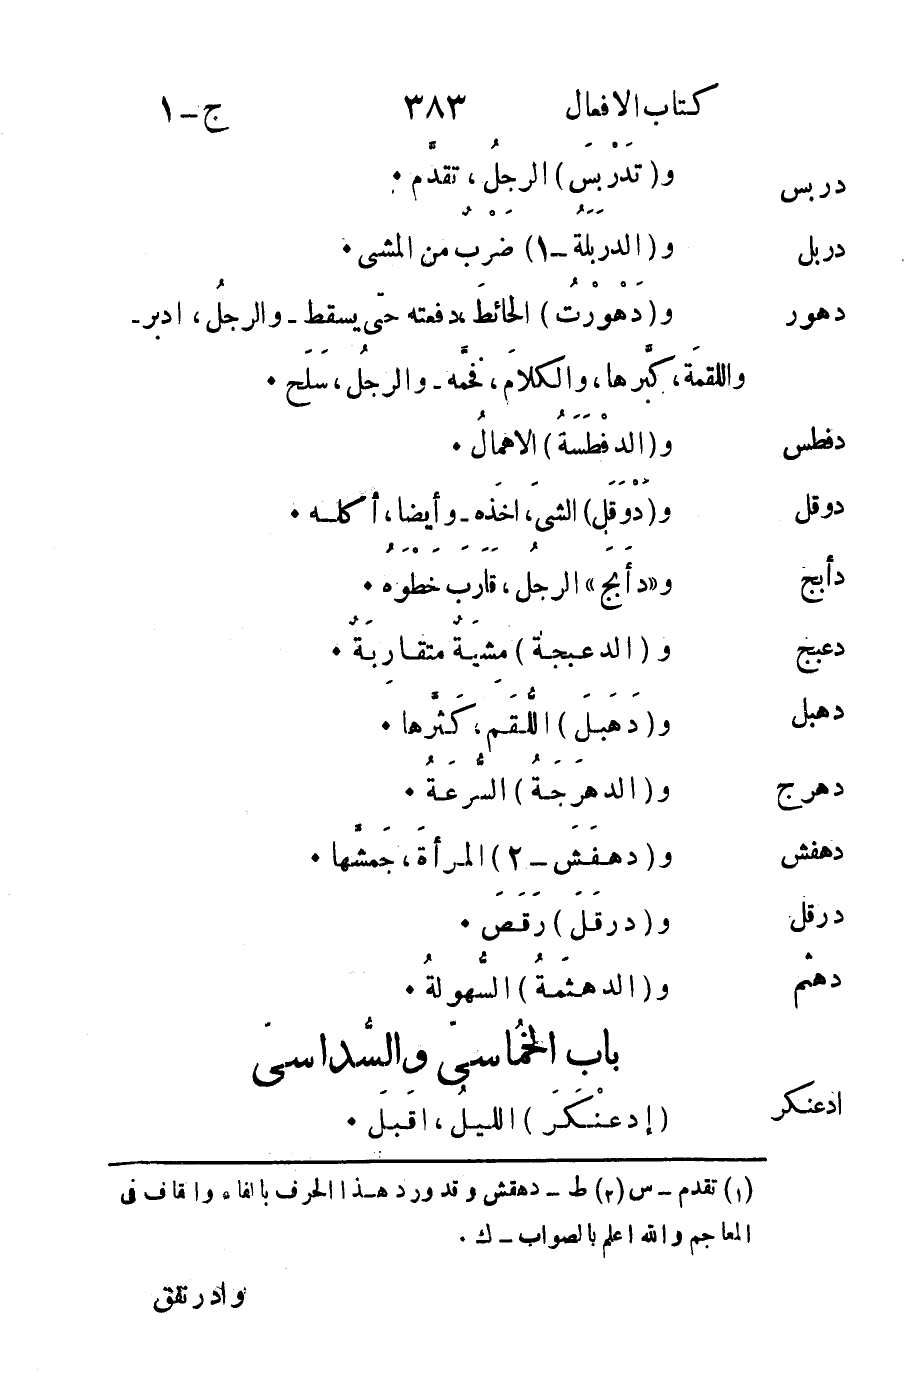 كتاب الافعال ٣٨٣ ج ـ ١
دربس و(تَدَرْبَسَ) الرجلُ، تقدَّم •
دربل و(الدَربَلَةُ ـ ١) ضَرْبٌ من المشى •
دهور و(دَهْوَرْتُ) الحائطَ، دفعته حتّى يسقط ـ والرجلُ، ادبر ـ
واللقمَة، كبَّرها، والكلامَ، فخَّمه ـ والرجلُ، سَلَح •
دفطس و(الدفْطَسَةُ) الاهمالُ •
دوقل و(دَوْقَلَ) الشىَٔ، اخَذه ـ وأيضا، أكلــه •
دأبج و«دَأبَجَ» الرجلُ، قَارَبَ خَطْوَهُ •
دعبج و(الدعبجة) مِشيَةٌ متقاربَةٌ •
دهبل و(دَهَبَلَ) اللُّقَمَ، كَثَّرها •
دهرج و(الدهرَجَةُ) السُّرعَةُ •
دهفش و(دهفَشَ ـ ٢) المرأةَ، جَمشَّها •
درقل و(درقَلَ) رَقَصَ •
دهثم و(الدهثَمةُ) السُّهولةُ •
باب الخُماسىّ والسُّداسىّ
ادعنكر (إدعنْكَرَ) الليلُ، اقبَلَ •
(١) تقدم ـ س (٢) ط ـ دهقش وقد ورد هذا الحرف بالفاء والقاف فى
المعاجم والله اعلم بالصواب ـ ك •
وادرنفق